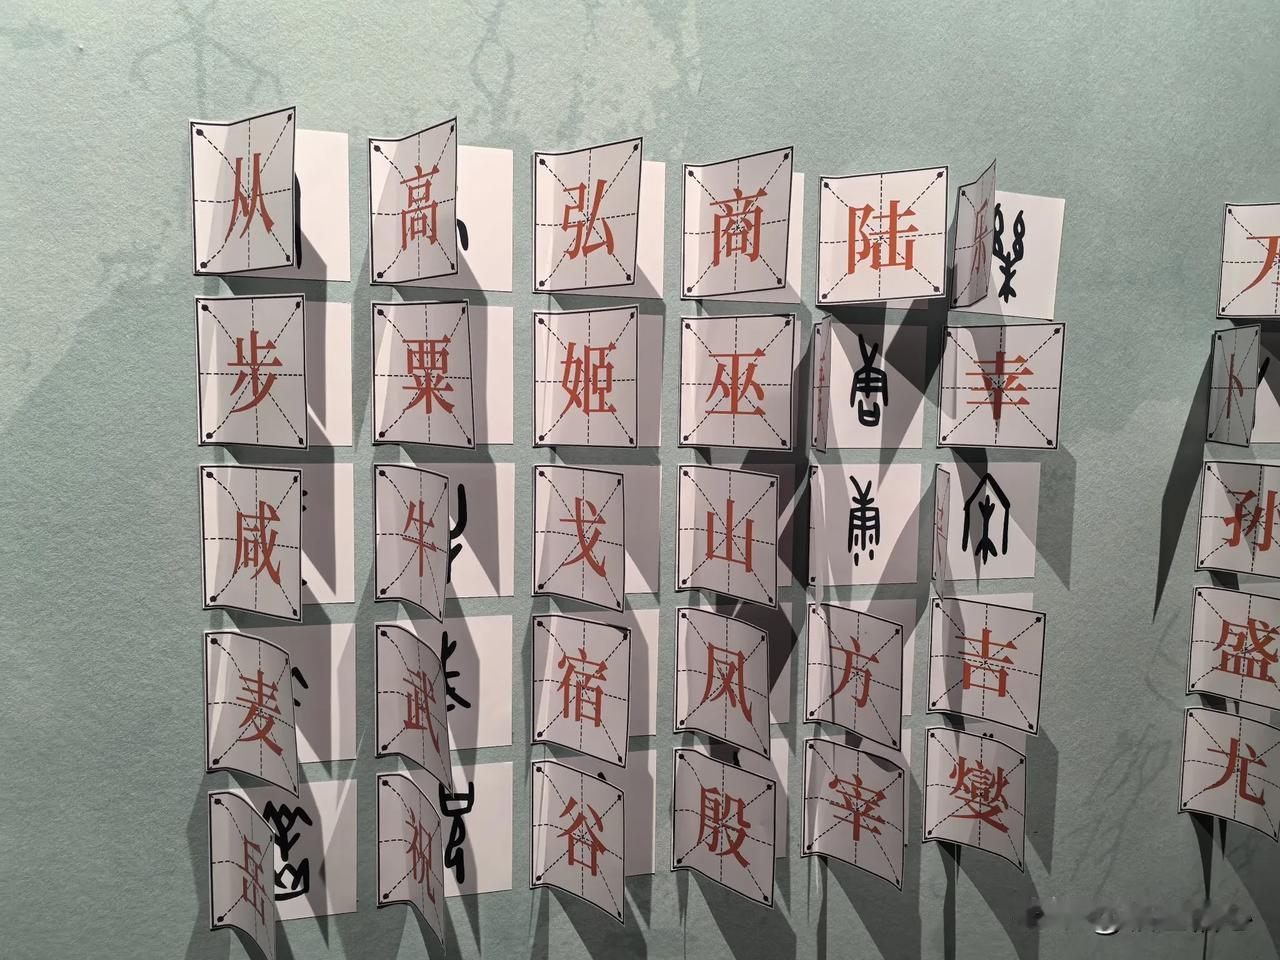 从 高 弘 商 陆 乐
步 粟 姬 巫 幸 卜
咸 牛 戈 山 孙
麦 武 宿 凤 方 吉 盛
岳 祝 谷 殷 宰 燮 尤